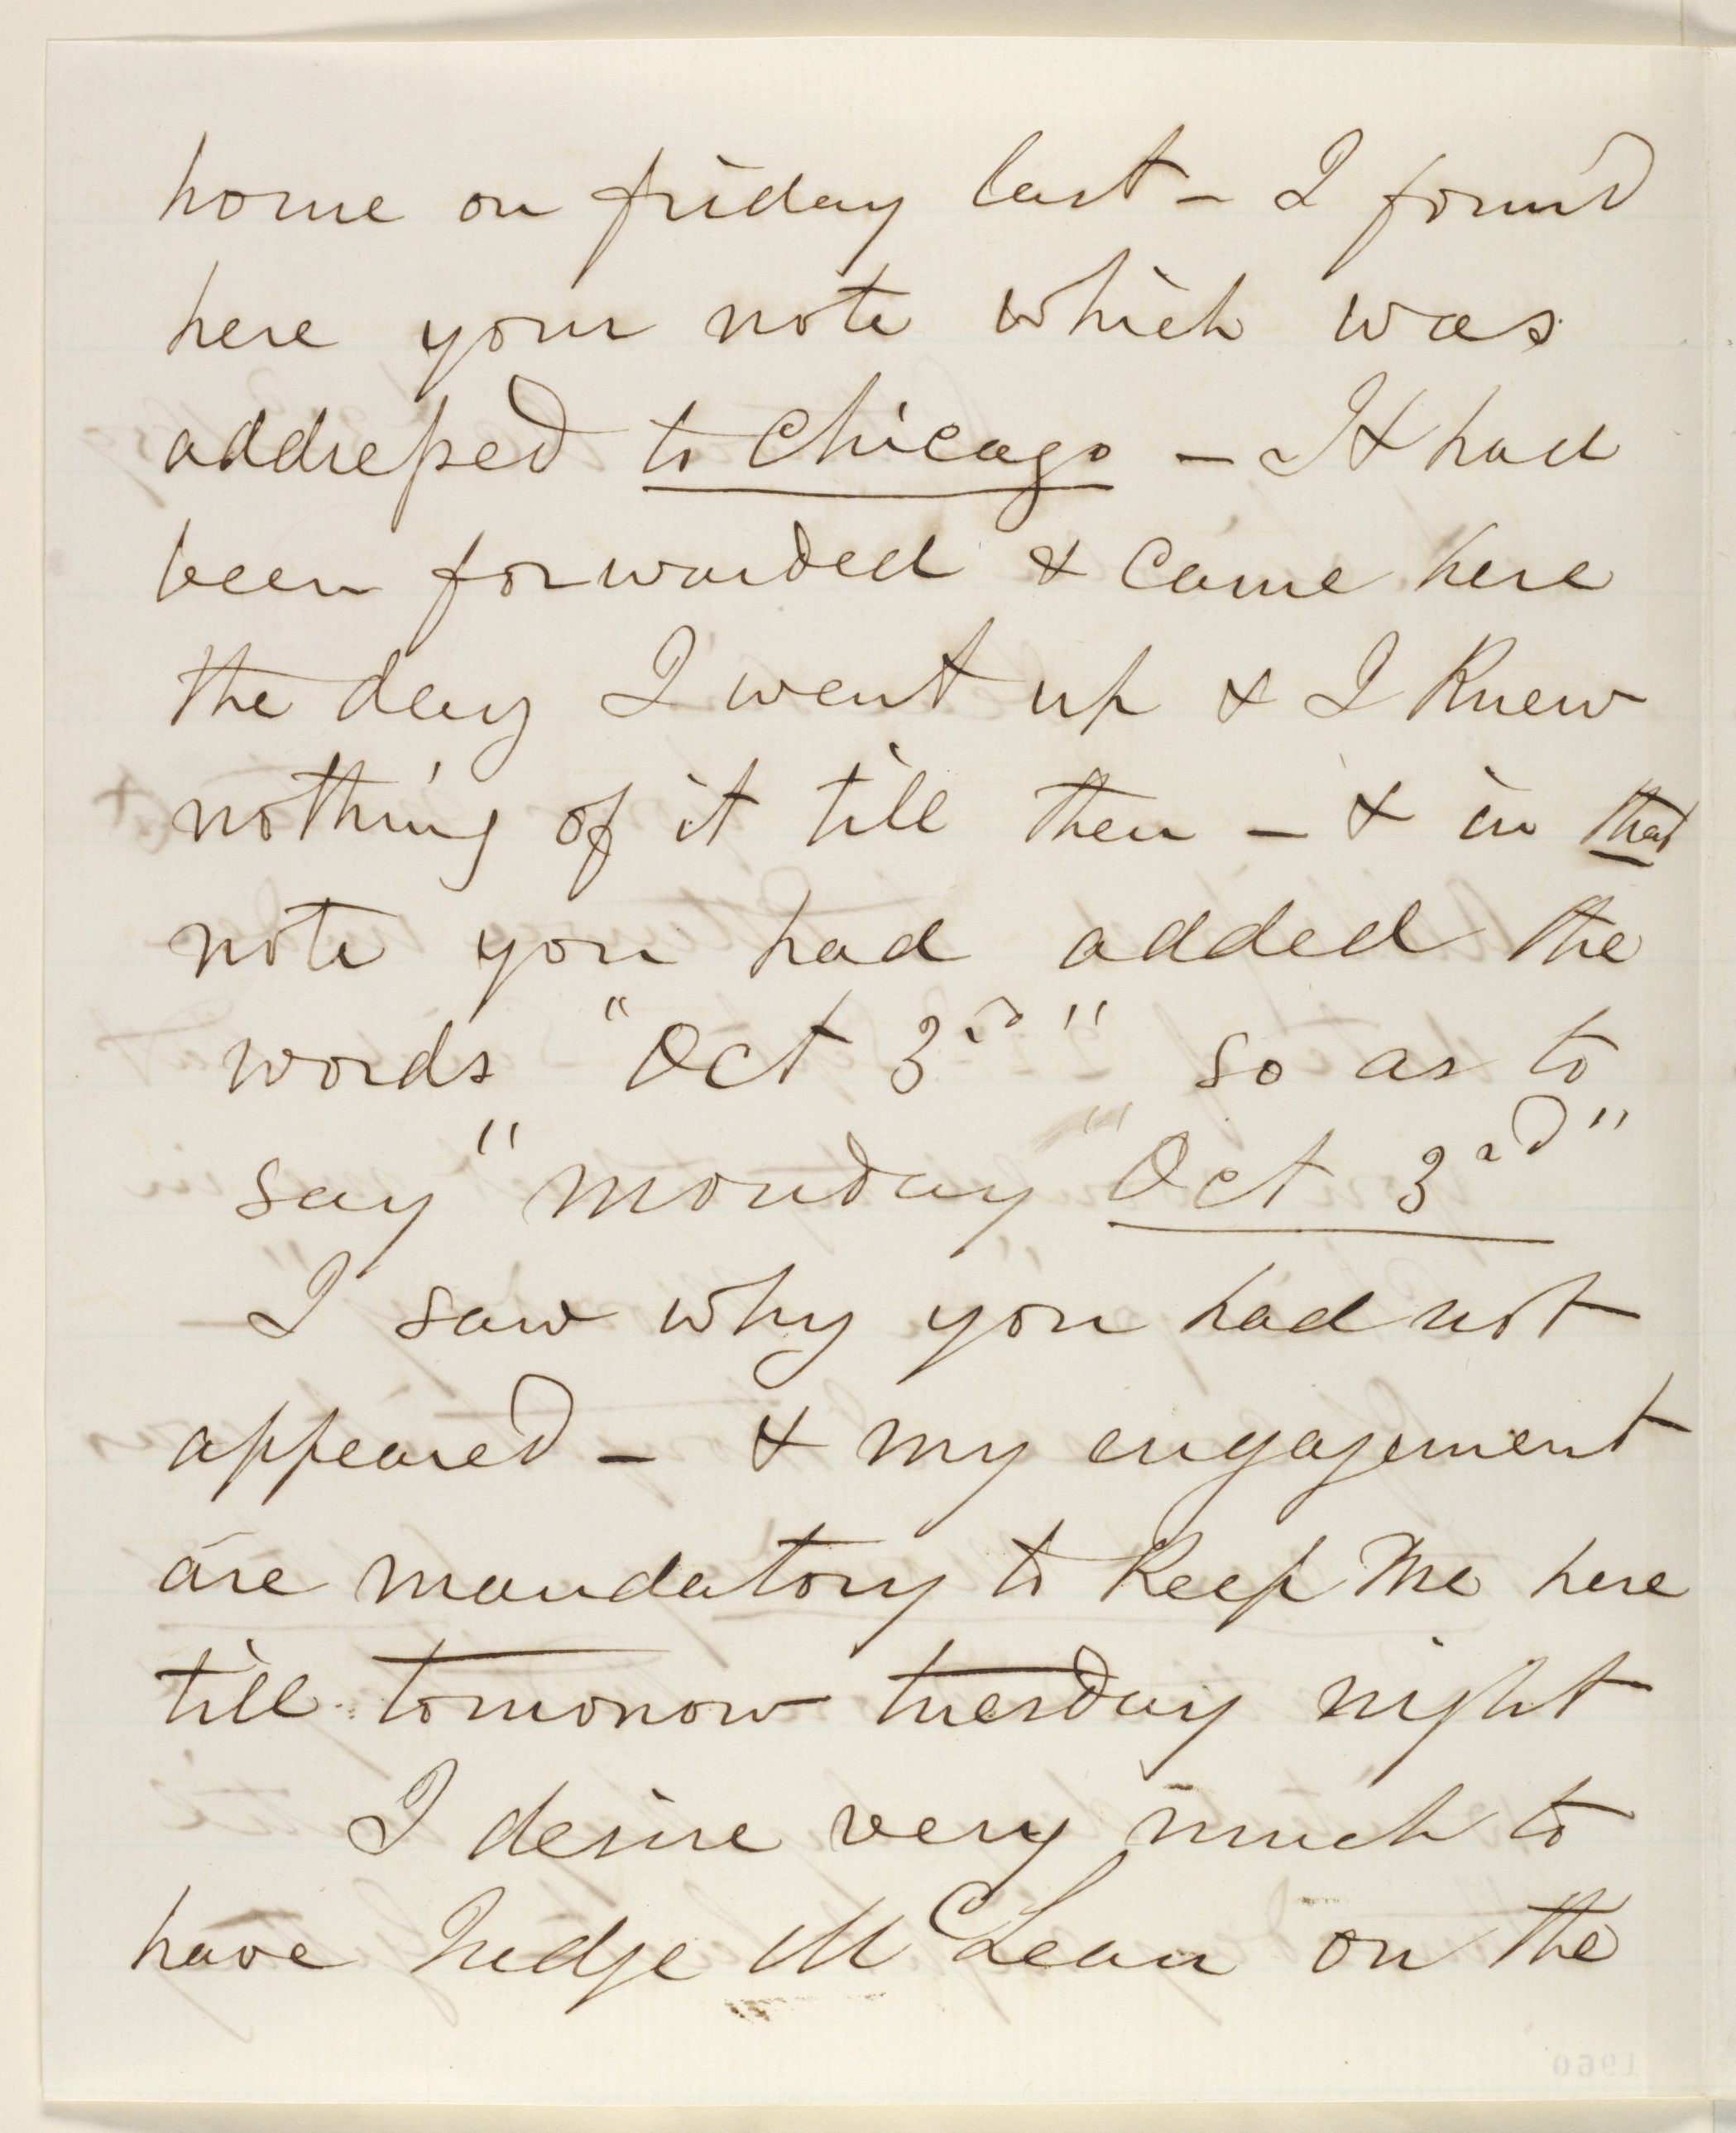 home on friday last - I found
here your note which was
addressed to Chicago - It had
been forwarded & came here
the day I went up & I knew
nothing of it till then - & in that
note you had added the
words "Oct 3rd" so as to
say "monday "Oct 3rd"
I saw why you had not
appeared - & my engagement
are mandatory to keep me here
till tomorrow tuesday night
I desire very much to
have Judge McLean on the
1960